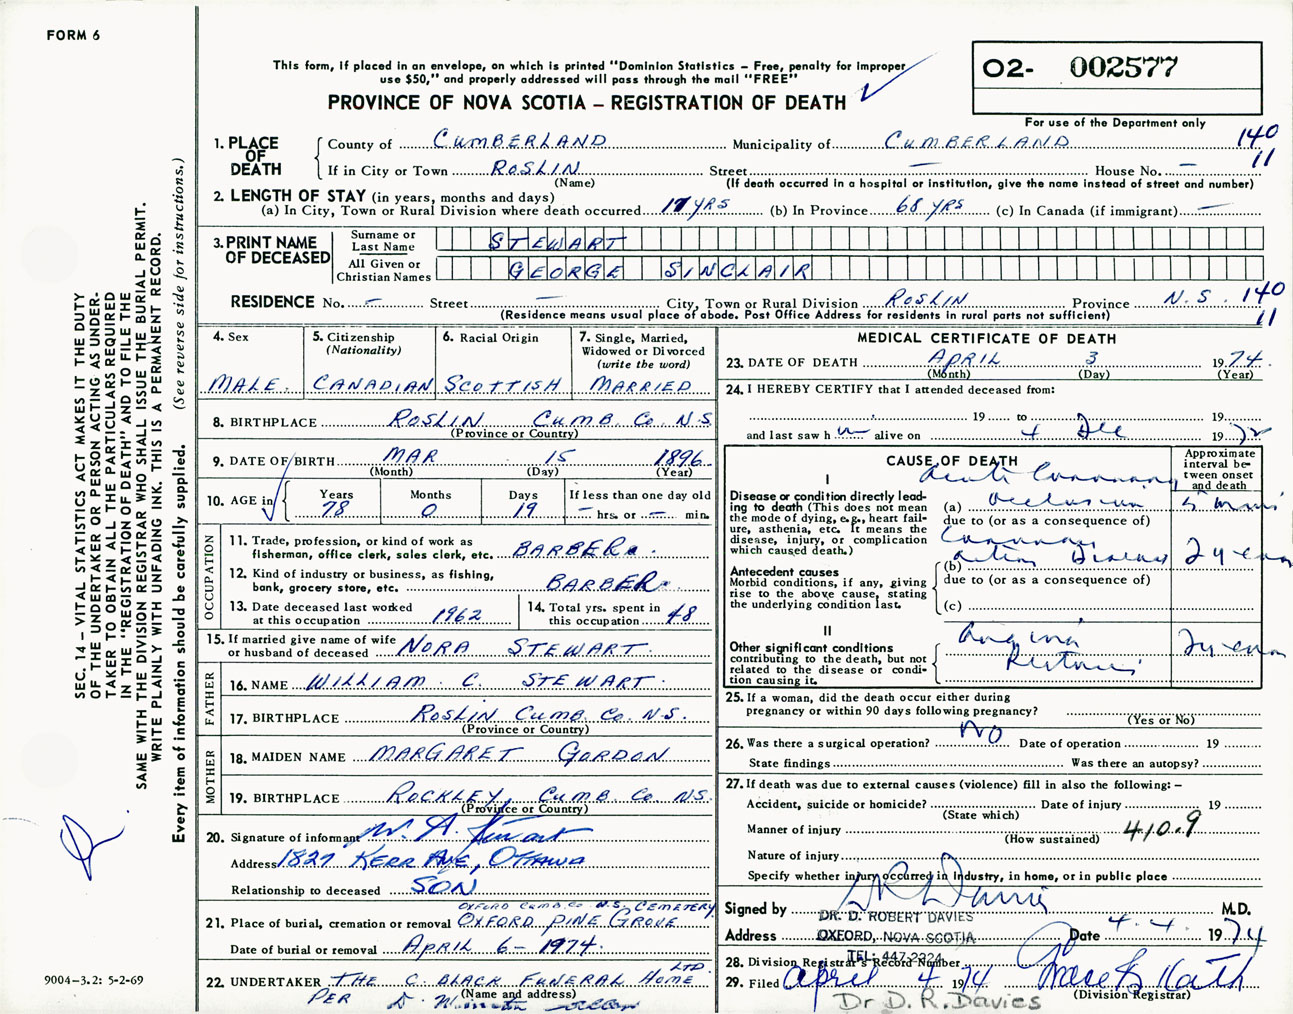 FORM 6
This form, if placed in an envelope, on which is printed "Dominion Statistics – Free, penalty for improper
use $50," and properly addressed will pass through the mail "FREE"
PROVINCE OF NOVA SCOTIA – REGISTRATION OF DEATH
O2- 002577
For use of the Department only
1. PLACE OF DEATH
County of CUMBERLAND Municipality of CUMBERLAND 140
If in City or Town ROSLIN Street — House No. — 11
(Name) (If death occurred in a hospital or institution, give the name instead of street and number)
2. LENGTH OF STAY (in years, months and days)
(a) In City, Town or Rural Division where death occurred 17 YRS (b) In Province 68 YRS (c) In Canada (if immigrant) —
3. PRINT NAME OF DECEASED
Surname or Last Name STEWART
All Given or Christian Names GEORGE SINCLAIR
RESIDENCE No. — Street — City, Town or Rural Division ROSLIN Province N.S. 140
(Residence means usual place of abode. Post Office Address for residents in rural parts not sufficient) 11
4. Sex
MALE
5. Citizenship
(Nationality)
CANADIAN
6. Racial Origin
SCOTTISH
7. Single, Married,
Widowed or Divorced
(write the word)
MARRIED
8. BIRTHPLACE ROSLIN CUMB. CO. N.S.
(Province or Country)
9. DATE OF BIRTH MAR 15 1896
(Month) (Day) (Year)
10. AGE in
Years Months Days If less than one day old
78 0 19 — hrs. or — min.
OCCUPATION
11. Trade, profession, or kind of work as
fisherman, office clerk, sales clerk, etc. BARBER
12. Kind of industry or business, as fishing,
bank, grocery store, etc. BARBER
13. Date deceased last worked
at this occupation 1962
14. Total yrs. spent in
this occupation 48
15. If married give name of wife
or husband of deceased NORA STEWART
FATHER
16. NAME WILLIAM C. STEWART
17. BIRTHPLACE ROSLIN CUMB. CO. N.S.
(Province or Country)
MOTHER
18. MAIDEN NAME MARGARET GORDON
19. BIRTHPLACE ROCKLEY, CUMB. CO N.S.
(Province or Country)
20. Signature of informant W. A. Stewart
Address 1827 KERR AVE, OTTAWA
Relationship to deceased SON
OXFORD CUMB. CO. N.S. CEMETERY
21. Place of burial, cremation or removal OXFORD PINE GROVE
Date of burial or removal APRIL 6 – 1974
22. UNDERTAKER THE C. BLACK FUNERAL HOME LTD.
(Name and address)
PER D.
MEDICAL CERTIFICATE OF DEATH
23. DATE OF DEATH APRIL 3 1974
(Month) (Day) (Year)
24. I HEREBY CERTIFY that I attended deceased from:
19 to 19
and last saw h im alive on 4 Dec 1972
CAUSE OF DEATH
Approximate
interval be-
tween onset
and death
I
Disease or condition directly lead-
ing to death (This does not mean
the mode of dying, e.g., heart fail-
ure, asthenia, etc. It means the
disease, injury, or complication
which caused death.)
Acute Coronary
(a) occlusion 5 mins
due to (or as a consequence of)
Coronary
(b) artery Disease 2 years
due to (or as a consequence of)
(c)
Antecedent causes
Morbid conditions, if any, giving
rise to the above cause, stating
the underlying condition last.
II
Other significant conditions
contributing to the death, but not
related to the disease or condi-
tion causing it.
Angina
Pectoris 2 years
25. If a woman, did the death occur either during
pregnancy or within 90 days following pregnancy?
(Yes or No)
26. Was there a surgical operation? NO Date of operation 19
State findings Was there an autopsy?
27. If death was due to external causes (violence) fill in also the following: –
Accident, suicide or homicide? Date of injury 19
(State which)
Manner of injury 410.9
(How sustained)
Nature of injury
Specify whether injury occurred in Industry, in home, or in public place
Signed by D R Davies M.D.
DR. D. ROBERT DAVIES
Address OXFORD, NOVA SCOTIA Date 4-4- 1974
TEL: 447-2324
28. Division Registrar's Record Number
29. Filed April 4 1974
(Division Registrar)
Dr D. R. Davies
SEC. 14 – VITAL STATISTICS ACT MAKES IT THE DUTY
OF THE UNDERTAKER OR PERSON ACTING AS UNDER-
TAKER TO OBTAIN ALL THE PARTICULARS REQUIRED
IN THE "REGISTRATION OF DEATH" AND TO FILE THE
SAME WITH THE DIVISION REGISTRAR WHO SHALL ISSUE THE BURIAL PERMIT.
WRITE PLAINLY WITH UNFADING INK. THIS IS A PERMANENT RECORD.
Every item of information should be carefully supplied. (See reverse side for instructions.)
9004–3.2: 5-2-69